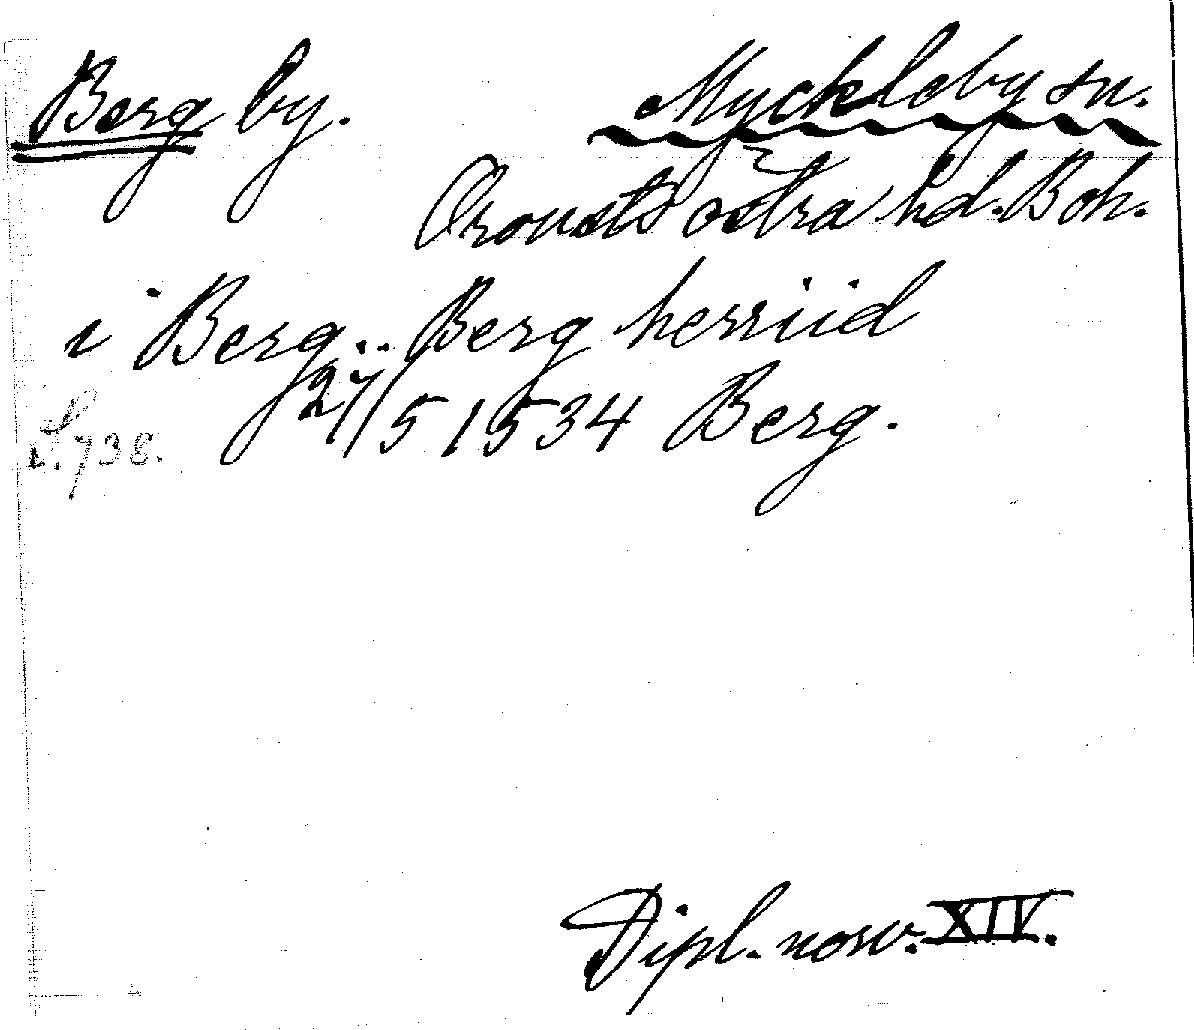 Berg by. Myckleby sn.
Orousts östra hd. Boh.
i Berg.. Berg herriid
27/5 1534 Berg.
S. 738.
Dipl. norv. XIV.